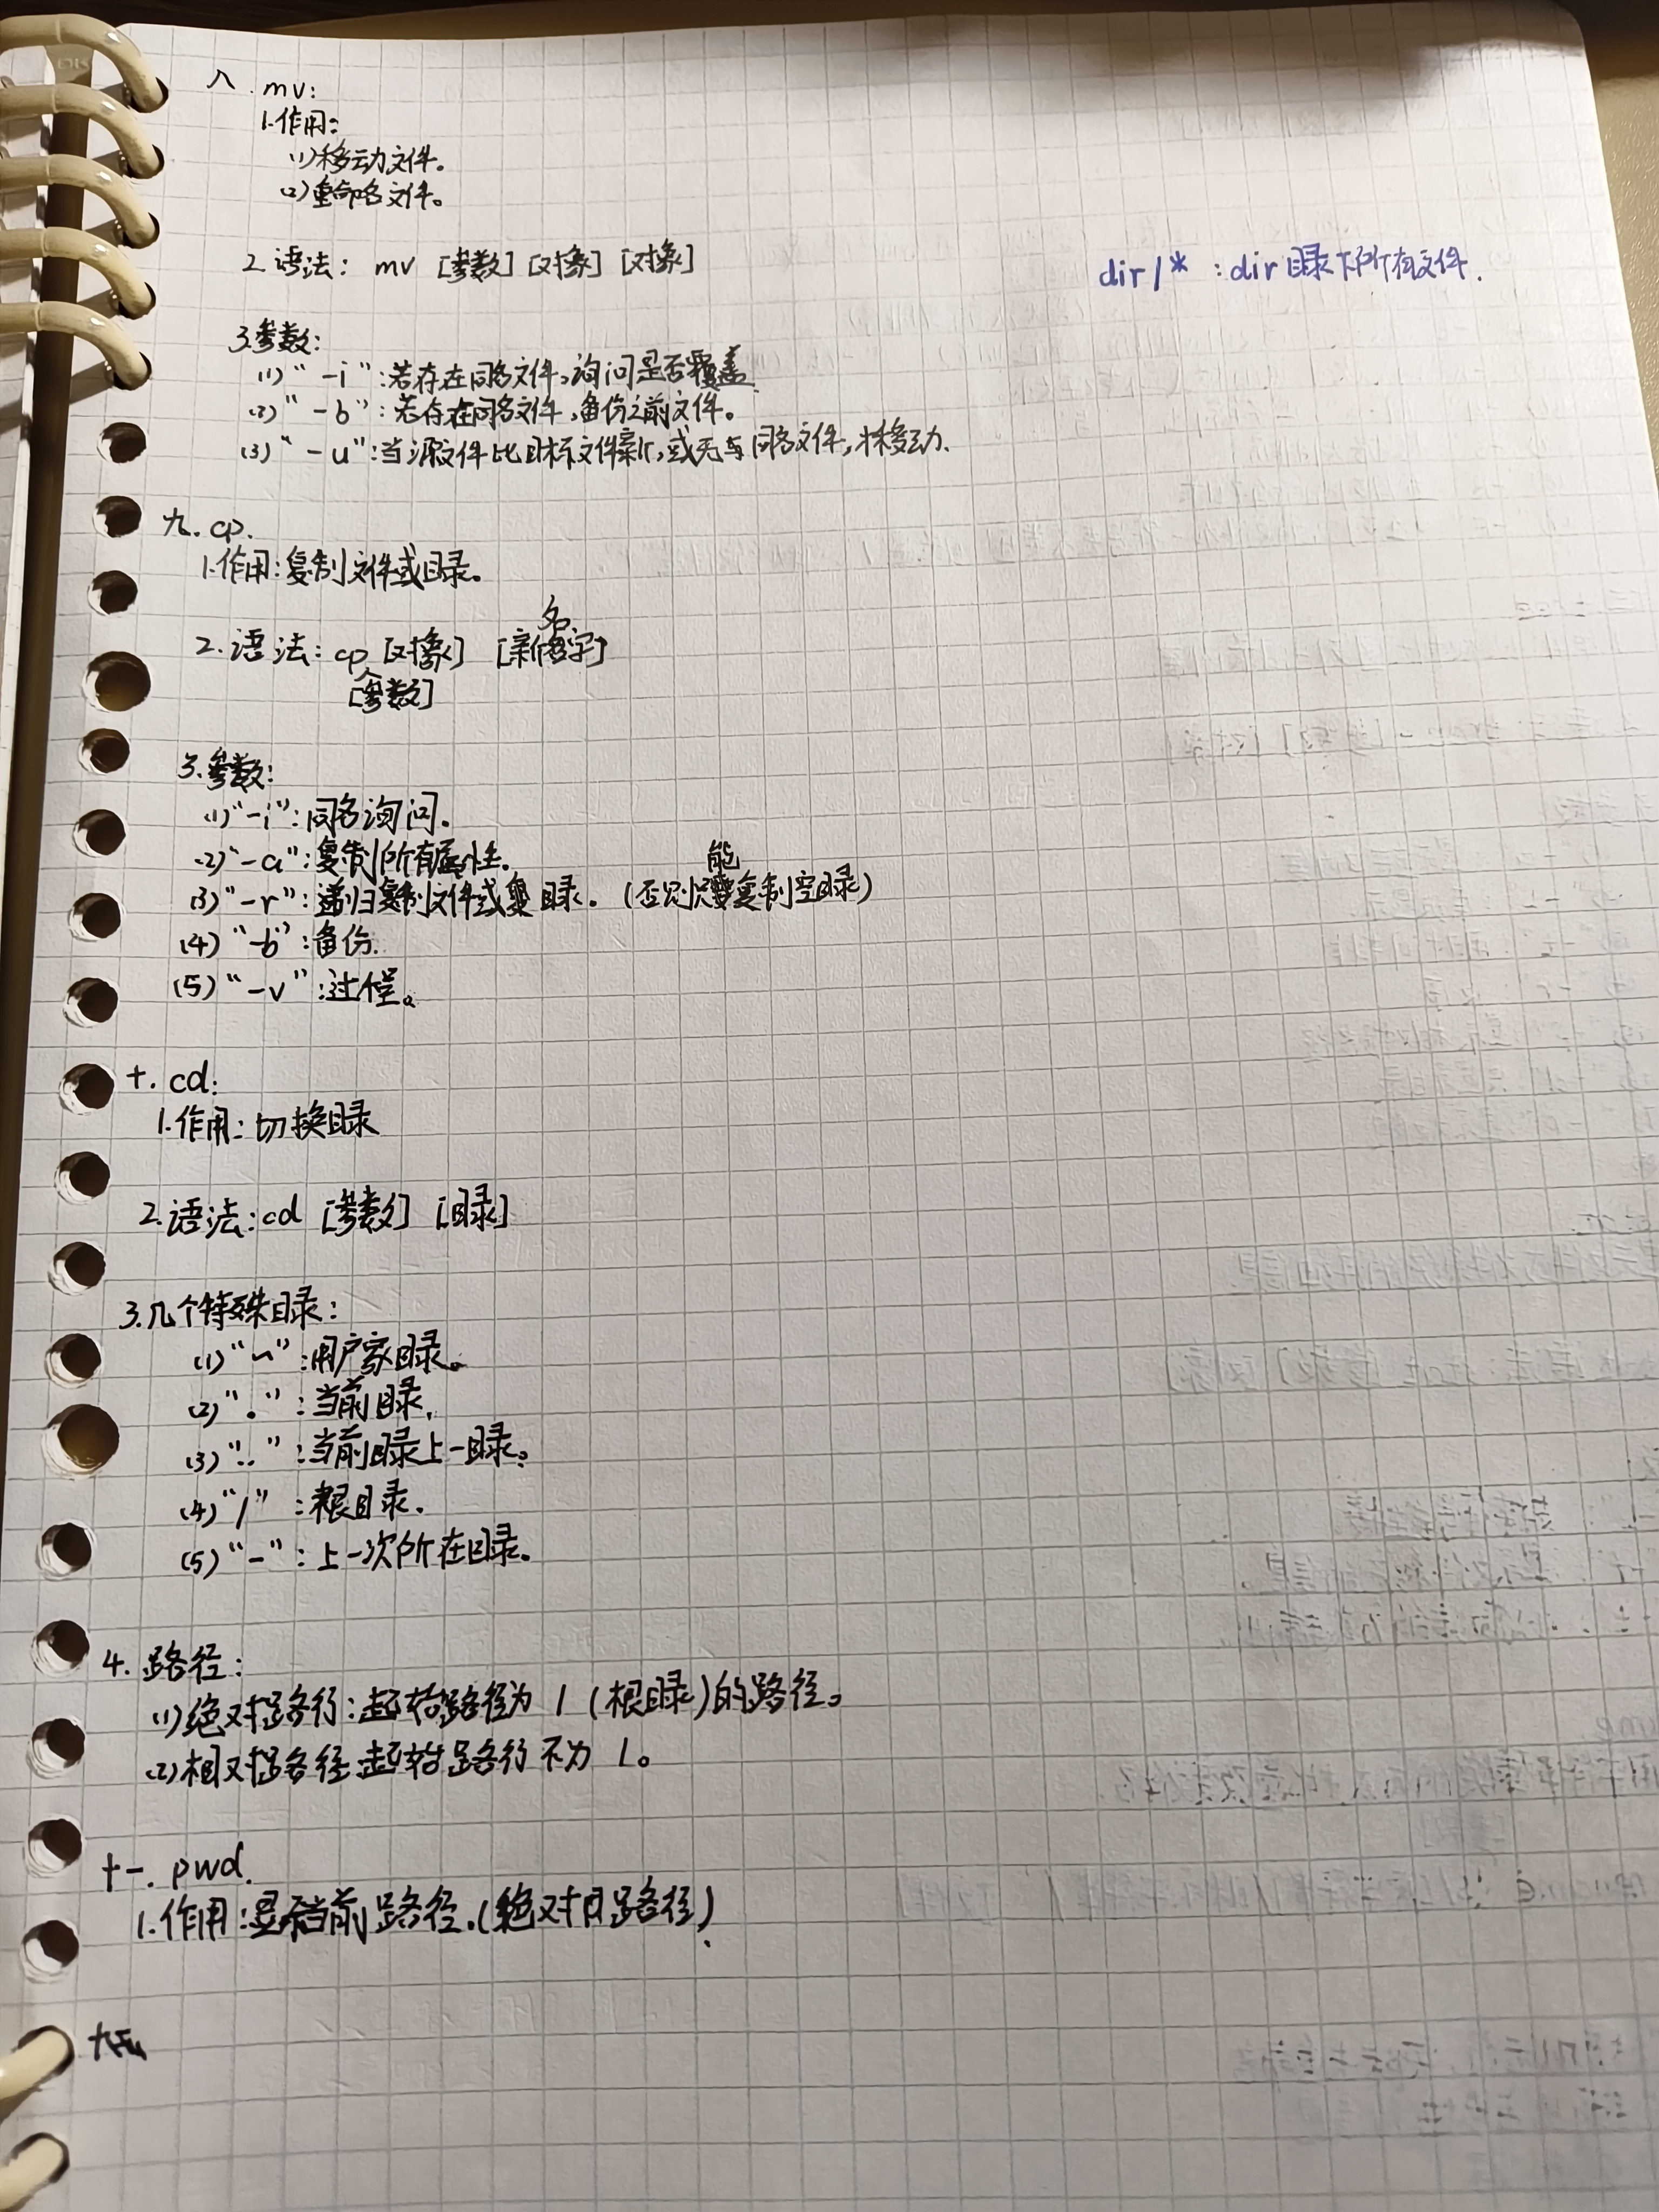 八. mv:
1.作用:
(1)移动文件。
(2)重命名文件。
2.语法: mv [参数] [对象] [对象]
dir/* :dir目录下所有文件.
3.参数:
(1)“-i”:若存在同名文件,询问是否覆盖
(2)“-b”:若存在同名文件,备份之前文件。
(3)“-u”:当源文件比目标文件新,或无与同名文件,才移动.
九. cp.
1.作用:复制文件或目录。
名
2.语法: cp [对象] [新字]
[参数]
3.参数:
(1)“-i”:同名询问.
(2)“-a”:复制所有属性.
能
(3)“-r”:递归复制文件或目录.(否则只复制空目录)
(4)“-b”:备份.
(5)“-v”:过程。
十. cd:
1.作用:切换目录
2.语法:cd [参数] [目录]
3.几个特殊目录:
(1)“~”:用户家目录。
(2)“.”:当前目录.
(3)“..”:当前目录上一目录。
(4)“/”:根目录.
(5)“-”:上一次所在目录。
4.路径:
(1)绝对路径:起始路径为 / (根目录)的路径。
(2)相对路径:起始路径不为 /。
十一. pwd.
1.作用:显示当前路径.(绝对路径)